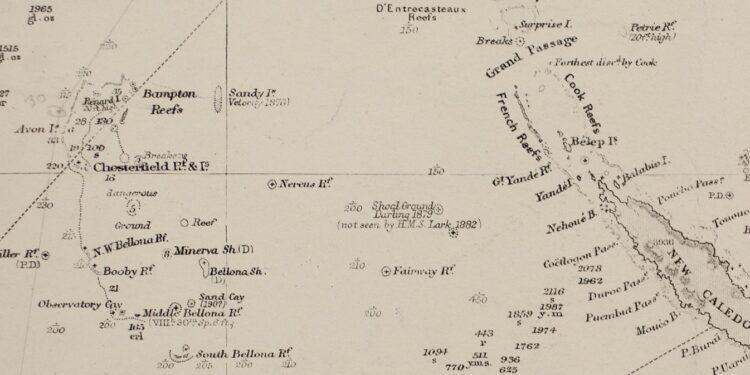 1965
gl. oz
D'Entrecasteaux
Reefs
150
Surprise I.
Breaks
Petrie Rf.
(20ft high)
Grand Passage
Forthest disc'd by Cook
Cook Reefs
French Reefs
1515
gl. oz
230
Bampton
Reefs
Sandy Is
Velocity 1876)
Renard I.
35
30
Avon Is
28
130
33
19
100
s
220
Breakers
Chesterfield Rf. & Is.
16
150
Belep Is
Balabio I.
Gt Yandé Rf.
Yandé I.
dangerous
5
Ground
Nereus Rf.
230
Reef
Shoal Ground
200
Darling 1879
(not seen by H.M.S. Lark 1882)
Nehoué B.
P.D.
215
N.W. Bellona Rf.
8. Minerva Sh. (D)
Bellona Sh.
(D)
Booby Rf.
(P.D)
210
Fairway Rf.
Coëtlogon Pass.
2078
1962
NEW CALEDO
21
Duroc Pass.
Sand Cay
(1907)
450
2116
s
1987
y. m
Observatory Cay
Middle Bellona Rf.
260
165
crl
200
1859
s
Puembut Pass.
1974
Mouéo B.
443
r
1762
P. Burai
P. Uarai
South Bellona Rf.
1094
s
511
yms.
936
770
625
200
205
200
210